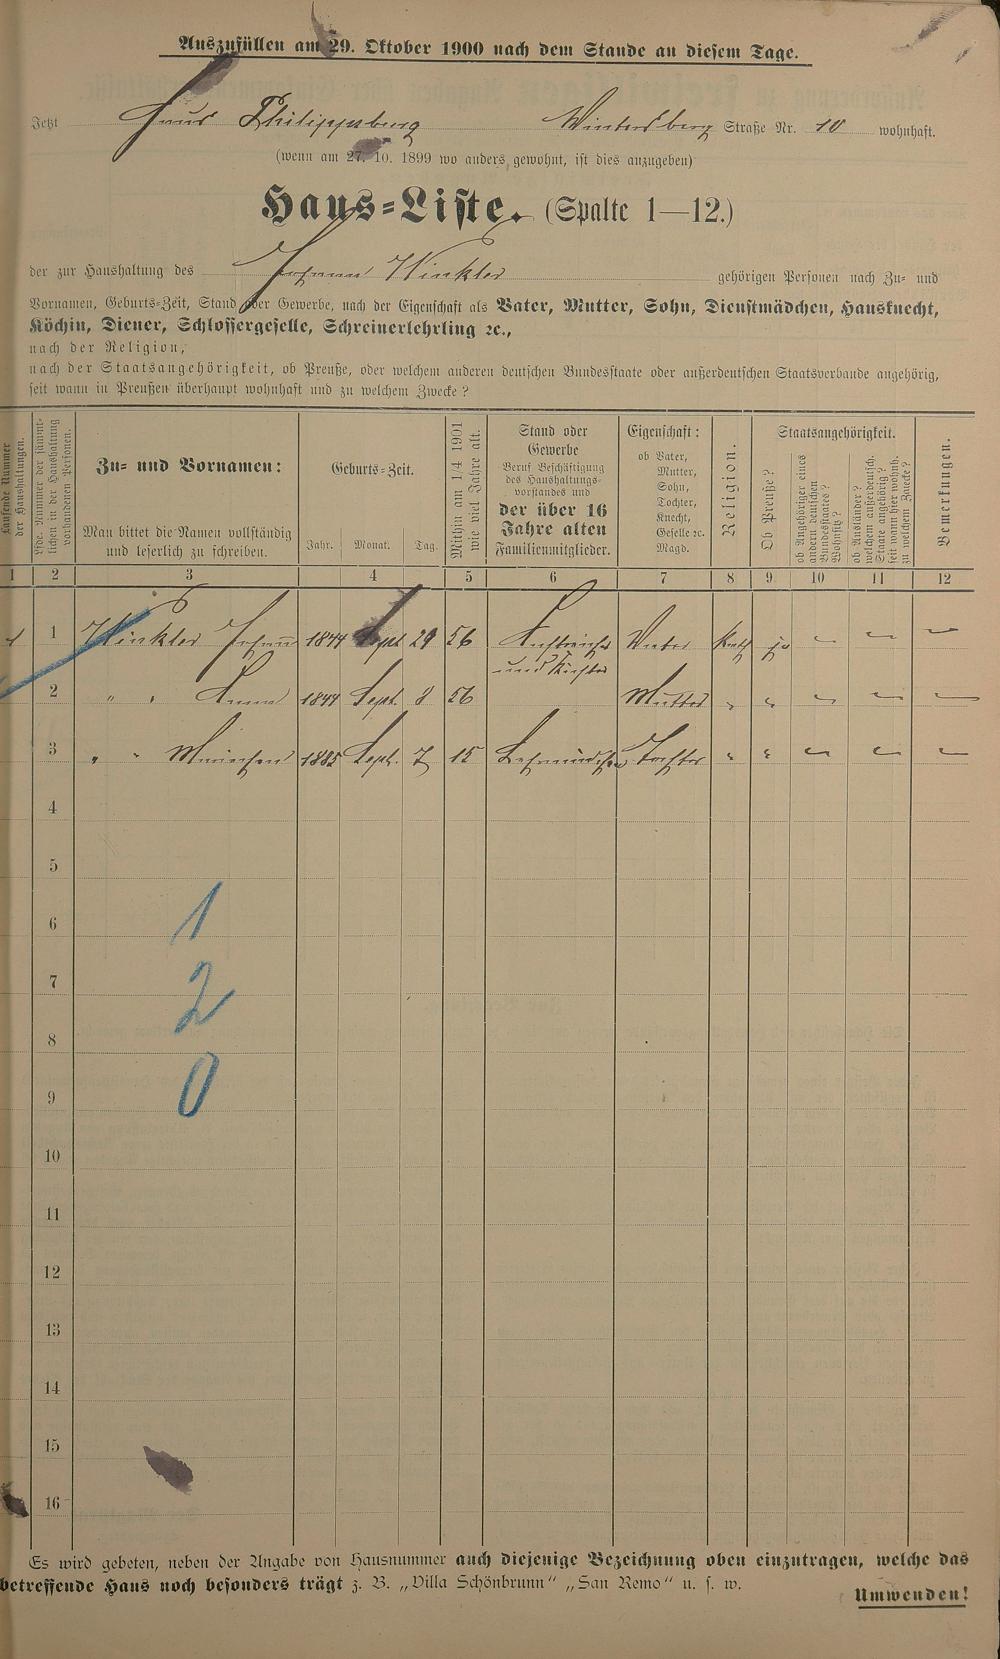 Auszufüllen am 29. Oktober 1900 nach dem Stande an diesem Tage.
Jetzt Haus Philippsberg Wintersberg Straße Nr. 10 wohnhaft.
(wenn am 27. 10. 1899 wo anders gewohnt, ist dies anzugeben)
Haus=Liste. (Spalte 1—12.)
der zur Haushaltung des Johann Winkler gehörigen Personen nach Zu- und
Vornamen, Geburts-Zeit, Stand oder Gewerbe, nach der Eigenschaft als Vater, Mutter, Sohn, Dienstmädchen, Hausknecht,
Köchin, Diener, Schlossergeselle, Schreinerlehrling ꝛc.,
nach der Religion,
nach der Staatsangehörigkeit, ob Preuße, oder welchem anderen deutschen Bundesstaate oder außerdeutschen Staatsverbande angehörig,
seit wann in Preußen überhaupt wohnhaft und zu welchem Zwecke?
Laufende Nummer
der Haushaltungen.
Lfde. Nummer der sämmt-
lichen in der Haushaltung
vorhandenen Personen.
Zu- und Vornamen:
Man bittet die Namen vollständig
und leserlich zu schreiben.
Geburts-Zeit.
Jahr. Monat. Tag.
Mithin am 1/4 1901
wie viel Jahre alt.
Stand oder
Gewerbe
Beruf Beschäftigung
des Haushaltungs-
vorstandes und
der über 16
Jahre alten
Familienmitglieder.
Eigenschaft:
ob Vater,
Mutter,
Sohn,
Tochter,
Knecht,
Geselle ꝛc.
Magd.
Religion.
Staatsangehörigkeit.
Ob Preuße?
ob Angehöriger eines
andern deutschen
Bundesstaates?
Wohnsitz?
ob Ausländer?
welchem außerdeutsch.
Staate angehörig?
seit wann hier wohnh.
zu welchem Zwecke?
Bemerkungen.
1 2 3 4 5 6 7 8 9 10 11 12
1 1 Winkler Johann 1844 Sept 29 56 Anstreicher Vater Kath ja — — —
und Küster
2 " " Anna 1844 Sept. 8 56 Mutter " " — — —
3 " " Minchen 1885 Sept. 7 15 Lehrmädchen Tochter " " — — —
4
5
6 1
7 2
8
9 0
10
11
12
13
14
15
16
Es wird gebeten, neben der Angabe von Hausnummer auch diejenige Bezeichnung oben einzutragen, welche das
betreffende Haus noch besonders trägt z. B. „Villa Schönbrunn" „San Remo" u. s. w.
Umwenden!